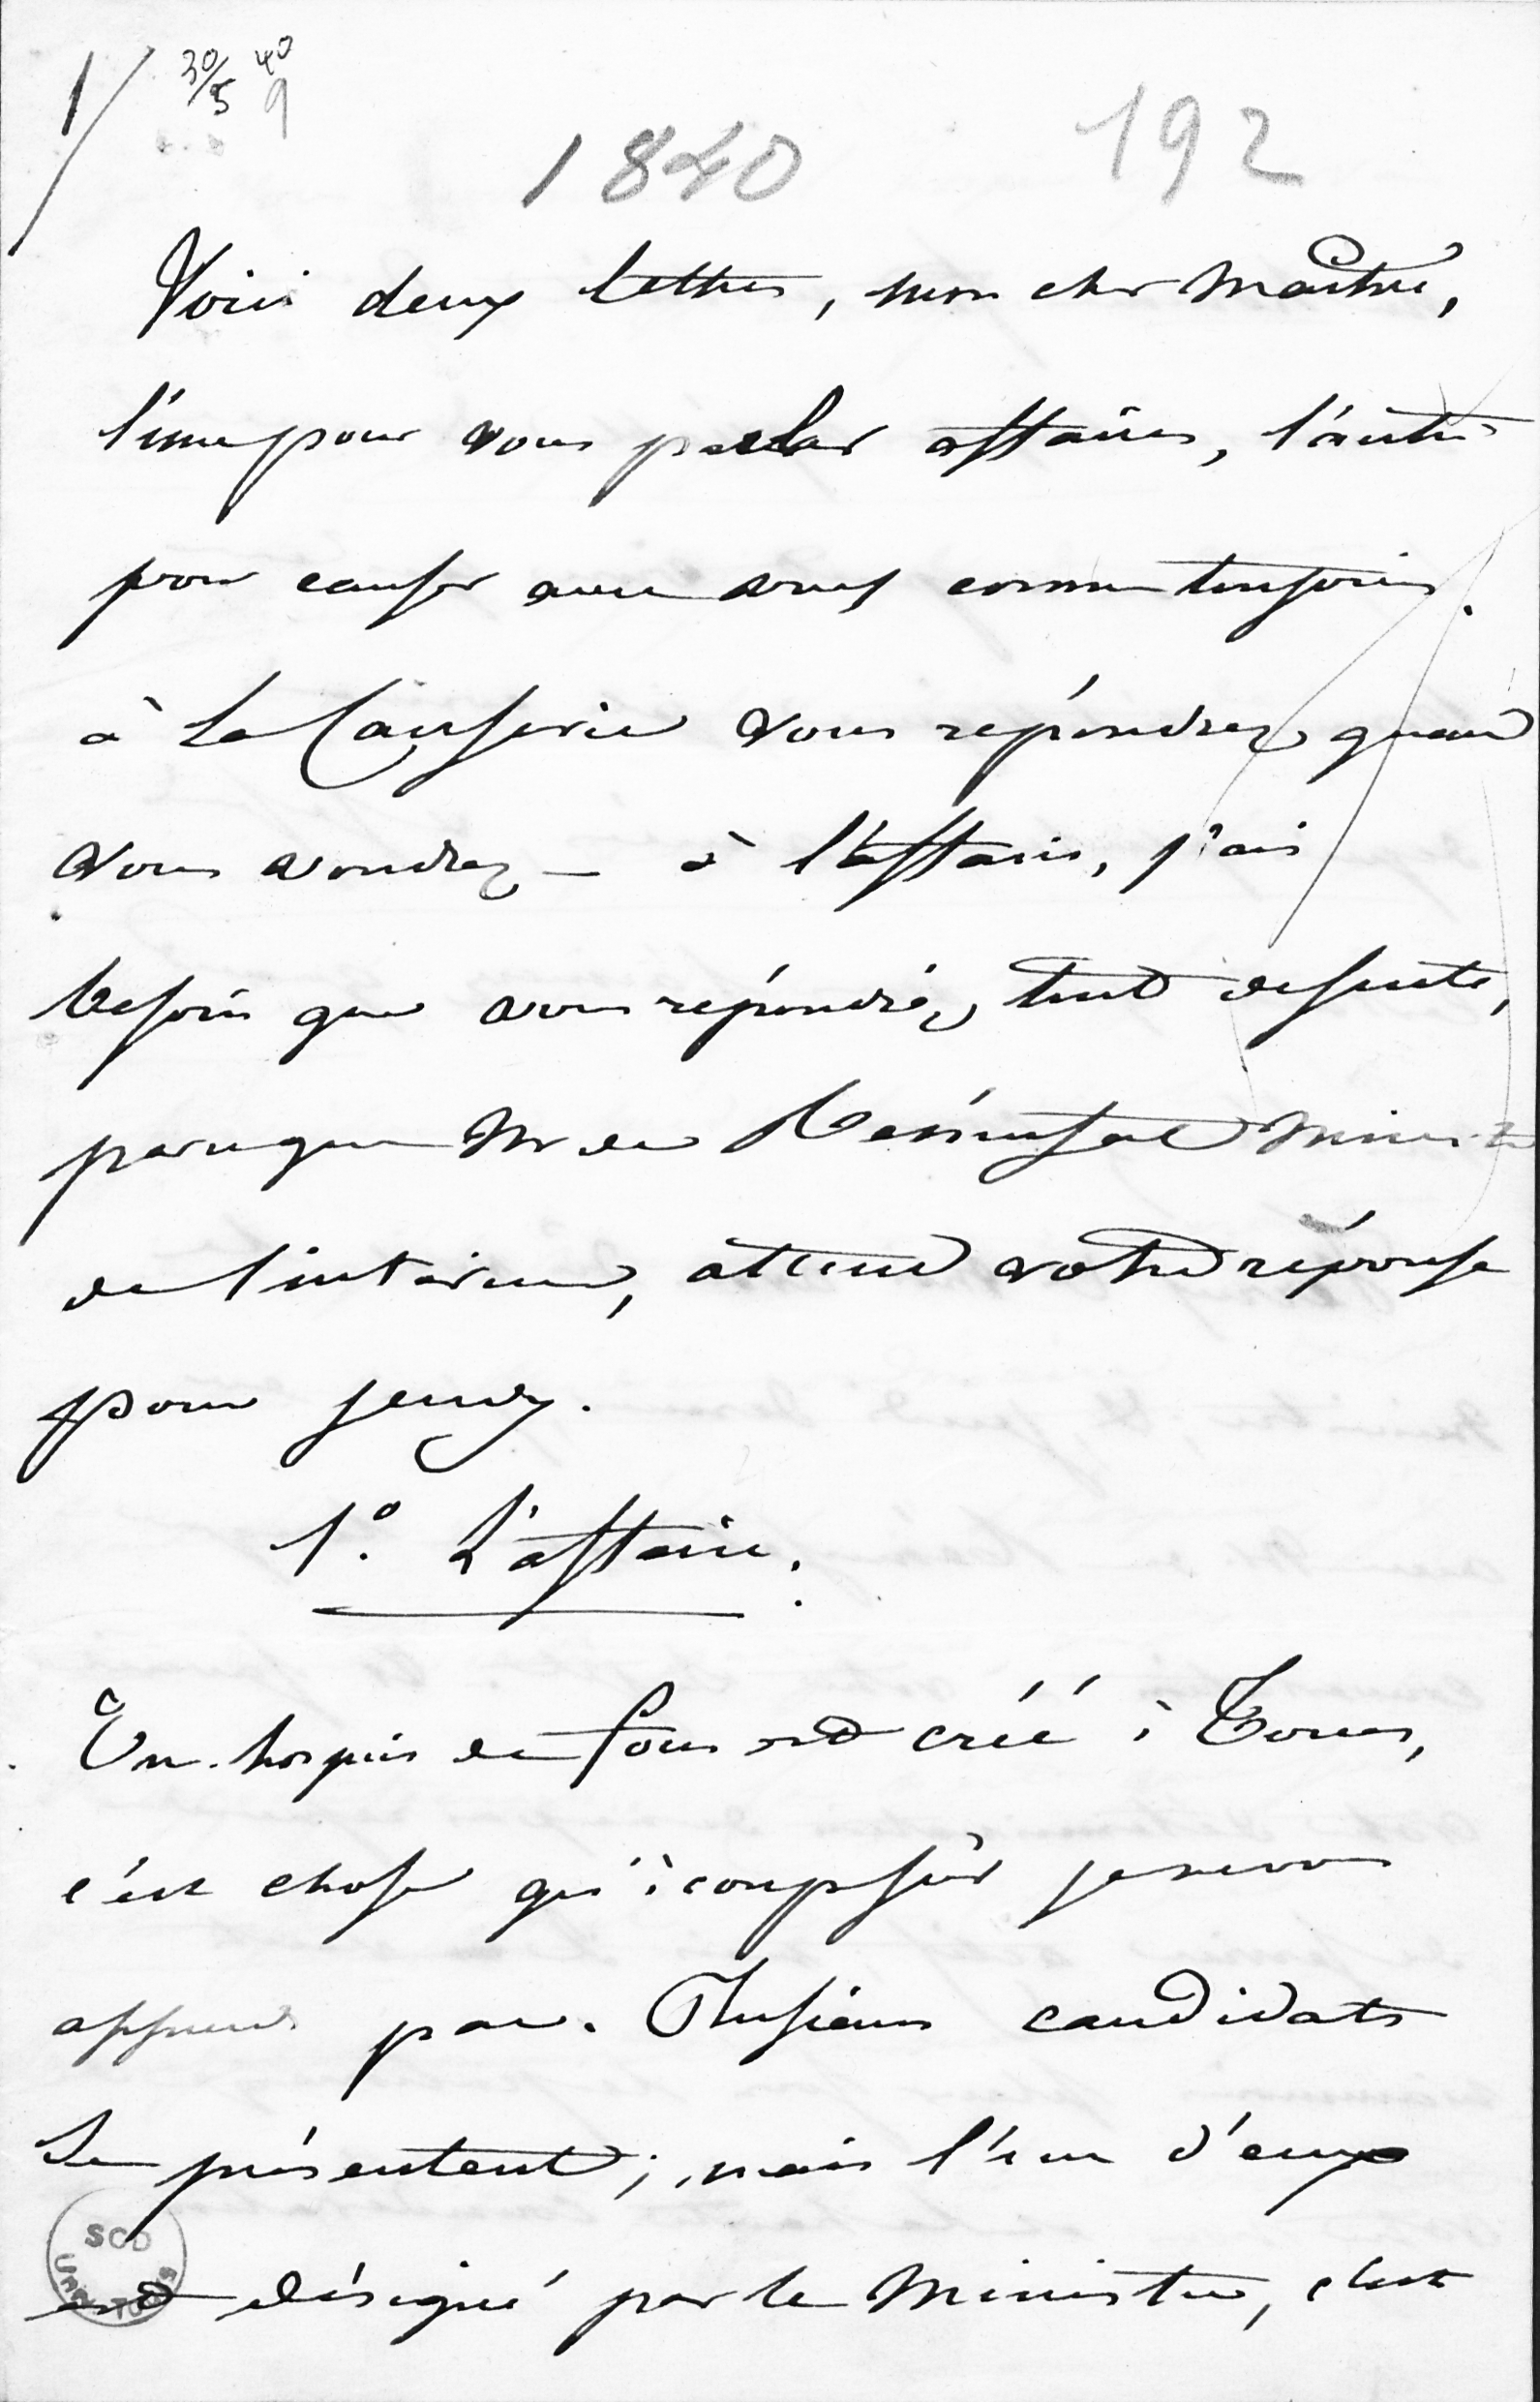 1/ 30/5 40
9
1840 192
Voici deux lettres, mon cher Maître,
l'une pour vous parler affaires, l'autre
pour causer avec vous comme toujours.
à la Causerie vous répondrez quand
vous voudrez — à l'affaire, j'ai
besoin que vous répondiez tout de suite,
parceque Mr de Rémusat Ministre
de l'intérieur, attend votre réponse
pour jeudy.
1º. L'affaire.
Un hospice de fous est créé à Tours,
c'est chose qu'à coup sûr je ne vous
apprends pas. Plusieurs candidats
se présentent; mais l'un d'eux
est désigné par le Ministre, c'est
SCD
UNIV TOURS